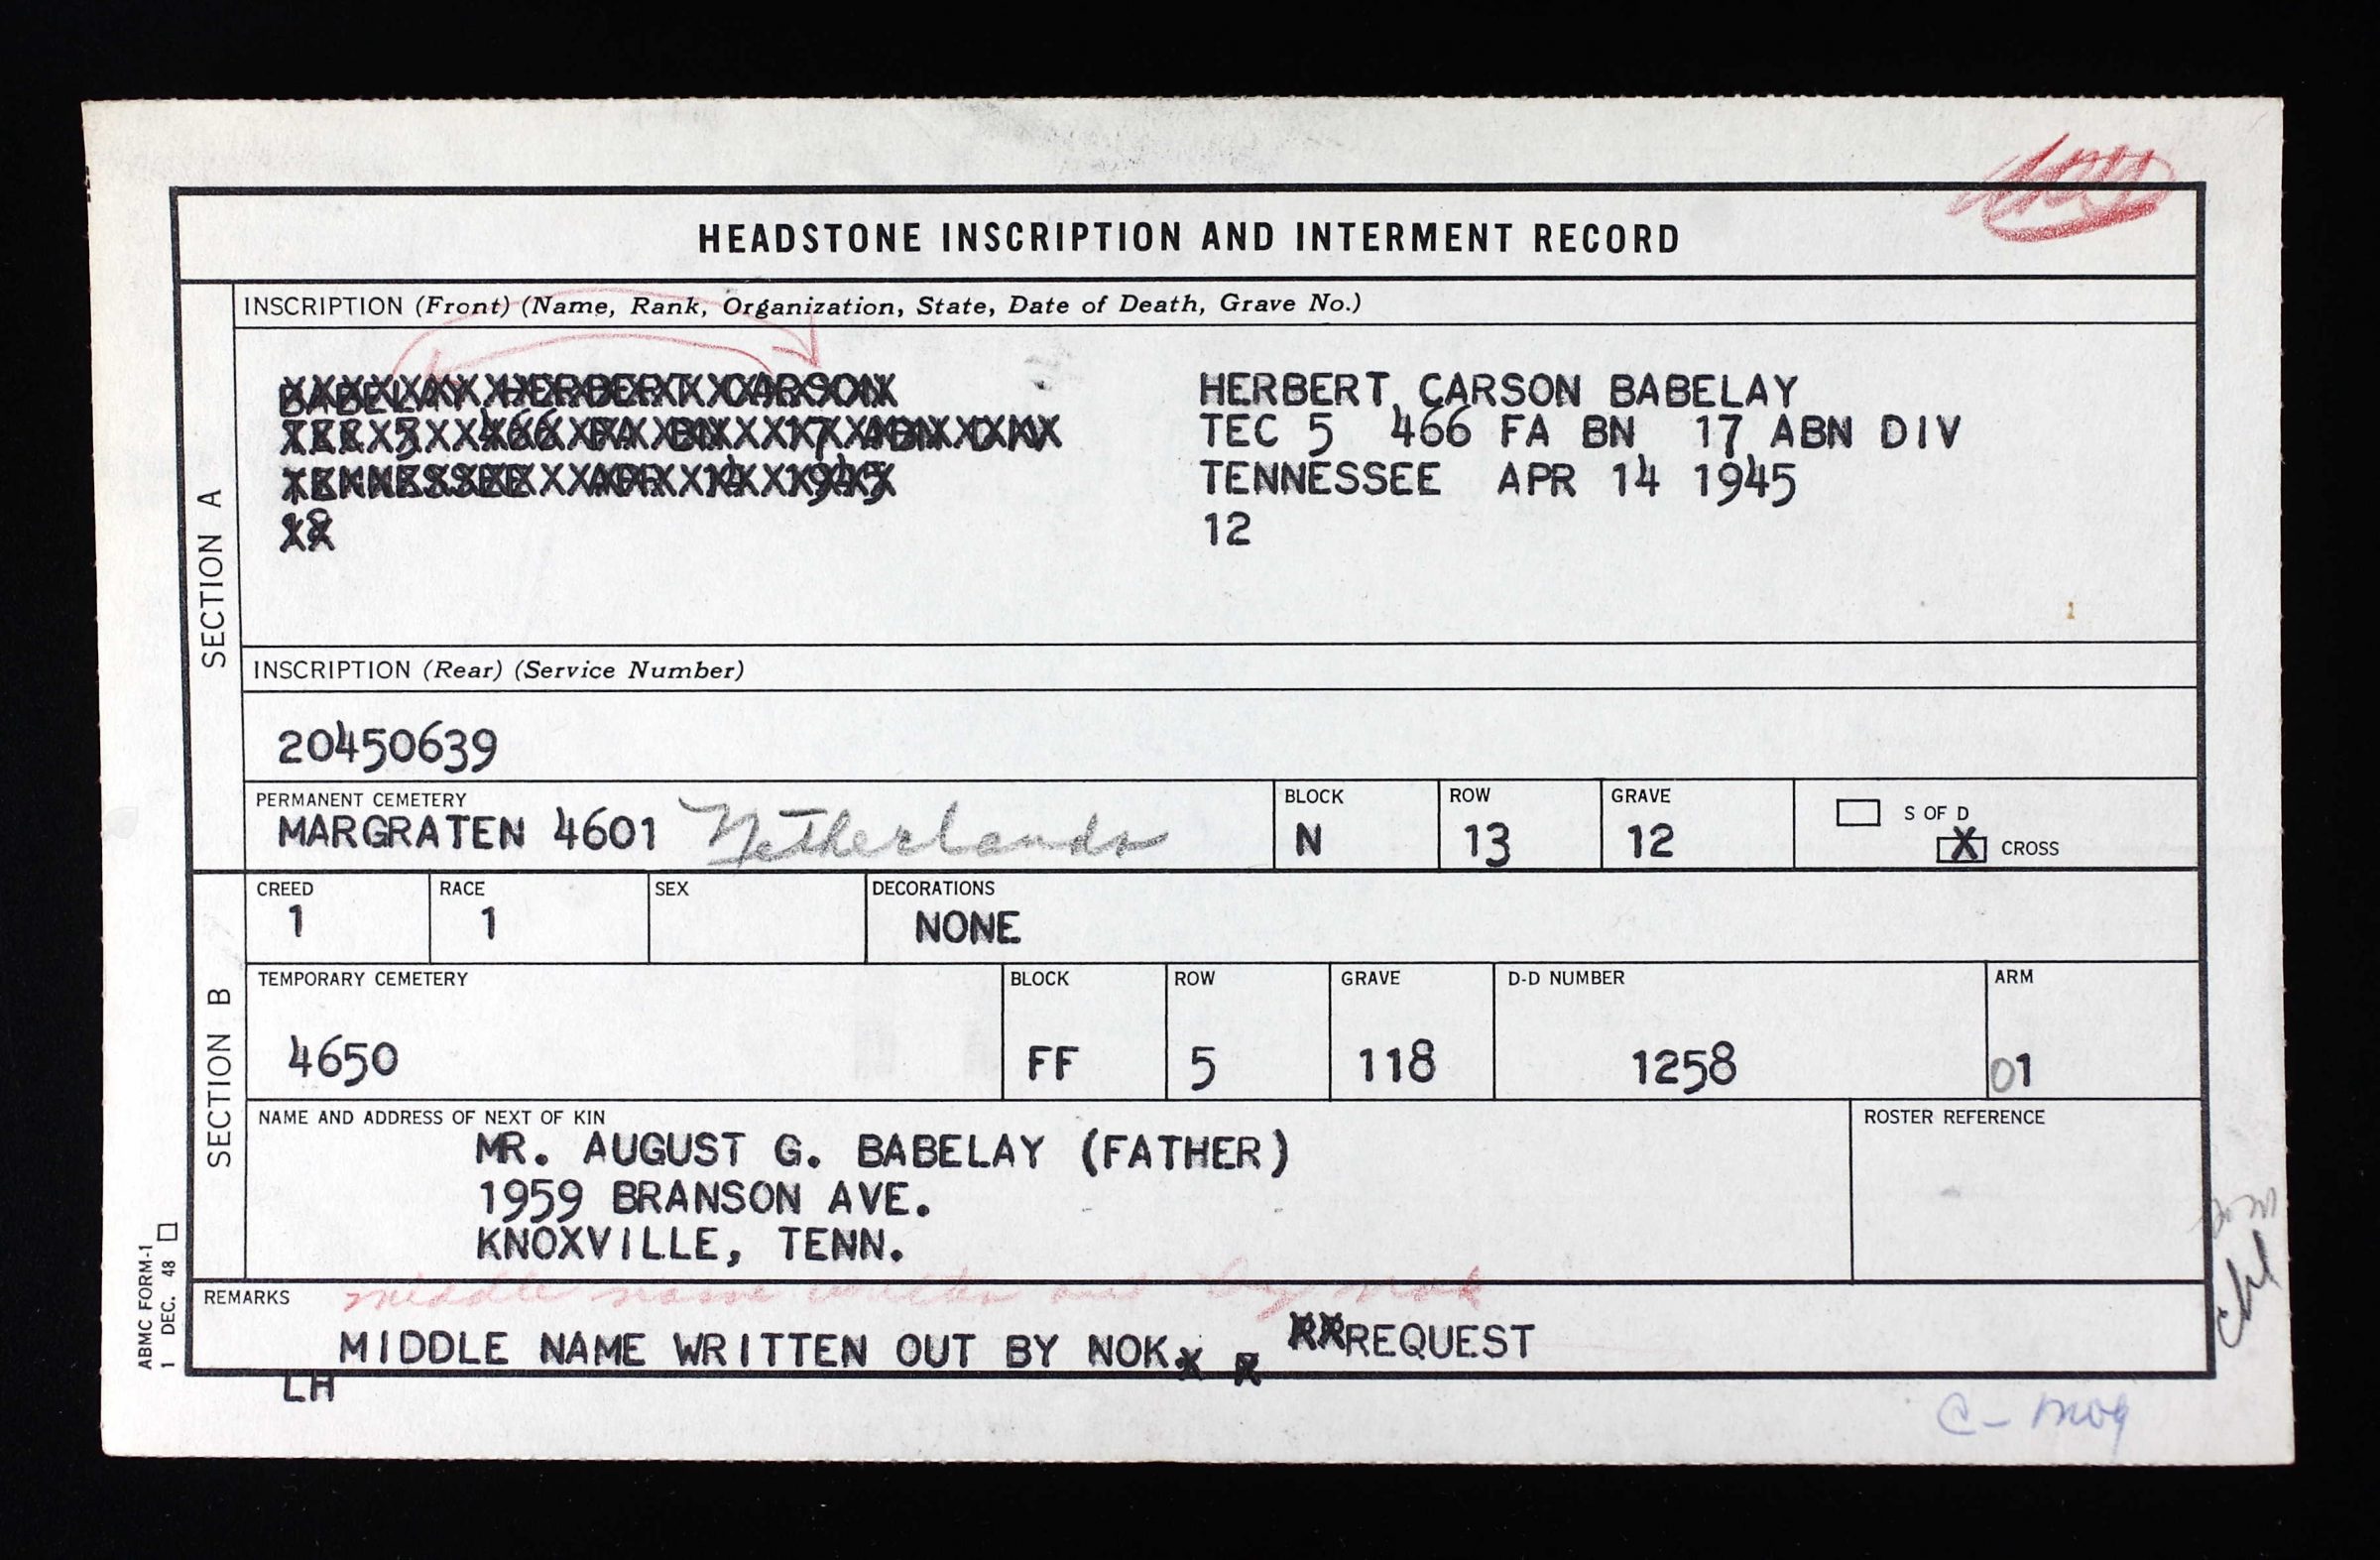 HEADSTONE INSCRIPTION AND INTERMENT RECORD
SECTION A
INSCRIPTION (Front) (Name, Rank, Organization, State, Date of Death, Grave No.)
BABELAY HERBERT CARSON
HERBERT CARSON BABELAY
TEC 5 466 FA BN 17 ABN DIV
TEC 5 466 FA BN 17 ABN DIV
TENNESSEE APR 14 1945
TENNESSEE APR 14 1945
12
12
INSCRIPTION (Rear) (Service Number)
20450639
PERMANENT CEMETERY
MARGRATEN 4601 Netherlands
BLOCK
N
ROW
13
GRAVE
12
S OF D
X CROSS
SECTION B
CREED
1
RACE
1
SEX
DECORATIONS
NONE
TEMPORARY CEMETERY
4650
BLOCK
FF
ROW
5
GRAVE
118
D-D NUMBER
1258
ARM
01
NAME AND ADDRESS OF NEXT OF KIN
MR. AUGUST G. BABELAY (FATHER)
1959 BRANSON AVE.
KNOXVILLE, TENN.
ROSTER REFERENCE
REMARKS
middle name written out by nok
MIDDLE NAME WRITTEN OUT BY NOK REQUEST
LH
ABMC FORM-1
1 DEC. 48